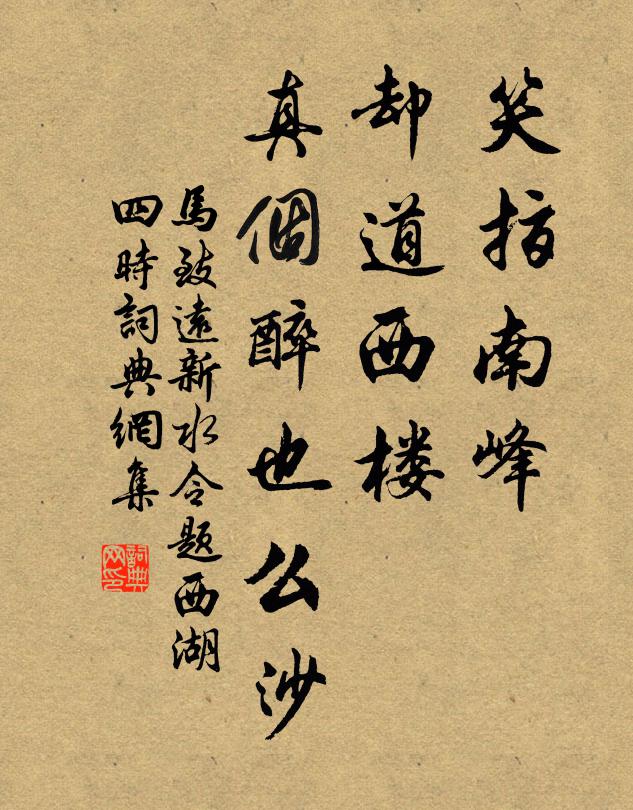 笑指南峰
却道西楼
真個醉也么沙
馬致遠新水令題西湖
四時詞典網集
詞典网印